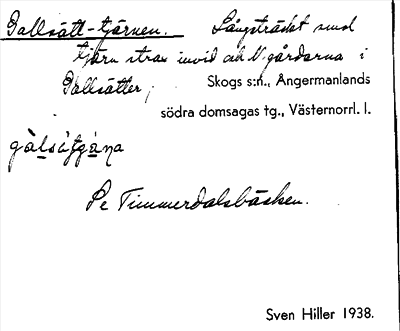 Gallsätt-tjärnen. Långsträckt smal
tjärn strax invid och N gårdarna i
Gallsätter, Skogs s:n., Ångermanlands
södra domsagas tg., Västernorrl. l.
Se Timmerdalsbäcken.
Sven Hiller 1938.